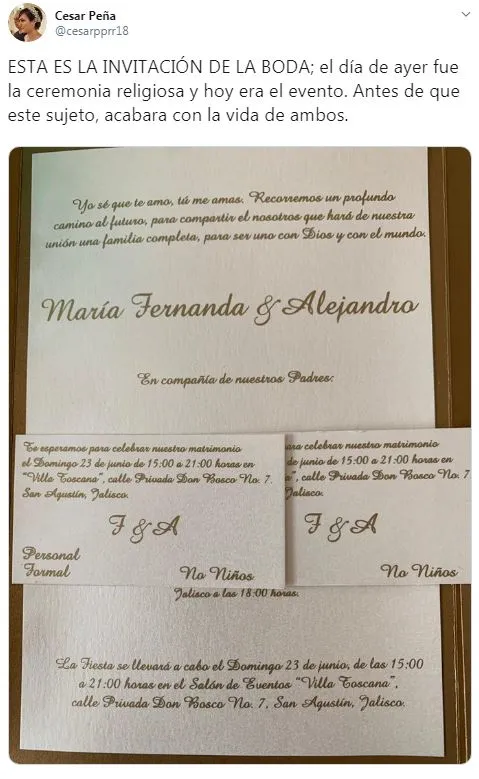 Cesar Peña
@cesarpprr18
ESTA ES LA INVITACIÓN DE LA BODA; el día de ayer fue
la ceremonia religiosa y hoy era el evento. Antes de que
este sujeto, acabara con la vida de ambos.
Yo sé que te amo, tú me amas. Recorremos un profundo
camino al futuro, para compartir el nosotros que hará de nuestra
unión una familia completa, para ser uno con Dios y con el mundo.
María Fernanda & Alejandro
En compañía de nuestros Padres:
Te esperamos para celebrar nuestro matrimonio
el Domingo 23 de junio de 15:00 a 21:00 horas en
"Villa Toscana", calle Privada Don Bosco No. 7.
San Agustín, Jalisco.
F & A
Personal
Formal
No Niños
ara celebrar nuestro matrimonio
de junio de 15:00 a 21:00 horas en
a", calle Privada Don Bosco No. 7
Jalisco.
F & A
No Niños
Jalisco a las 18:00 horas.
La Fiesta se llevará a cabo el Domingo 23 de junio, de las 15:00
a 21:00 horas en el Salón de Eventos "Villa Toscana",
calle Privada Don Bosco No. 7, San Agustín, Jalisco.